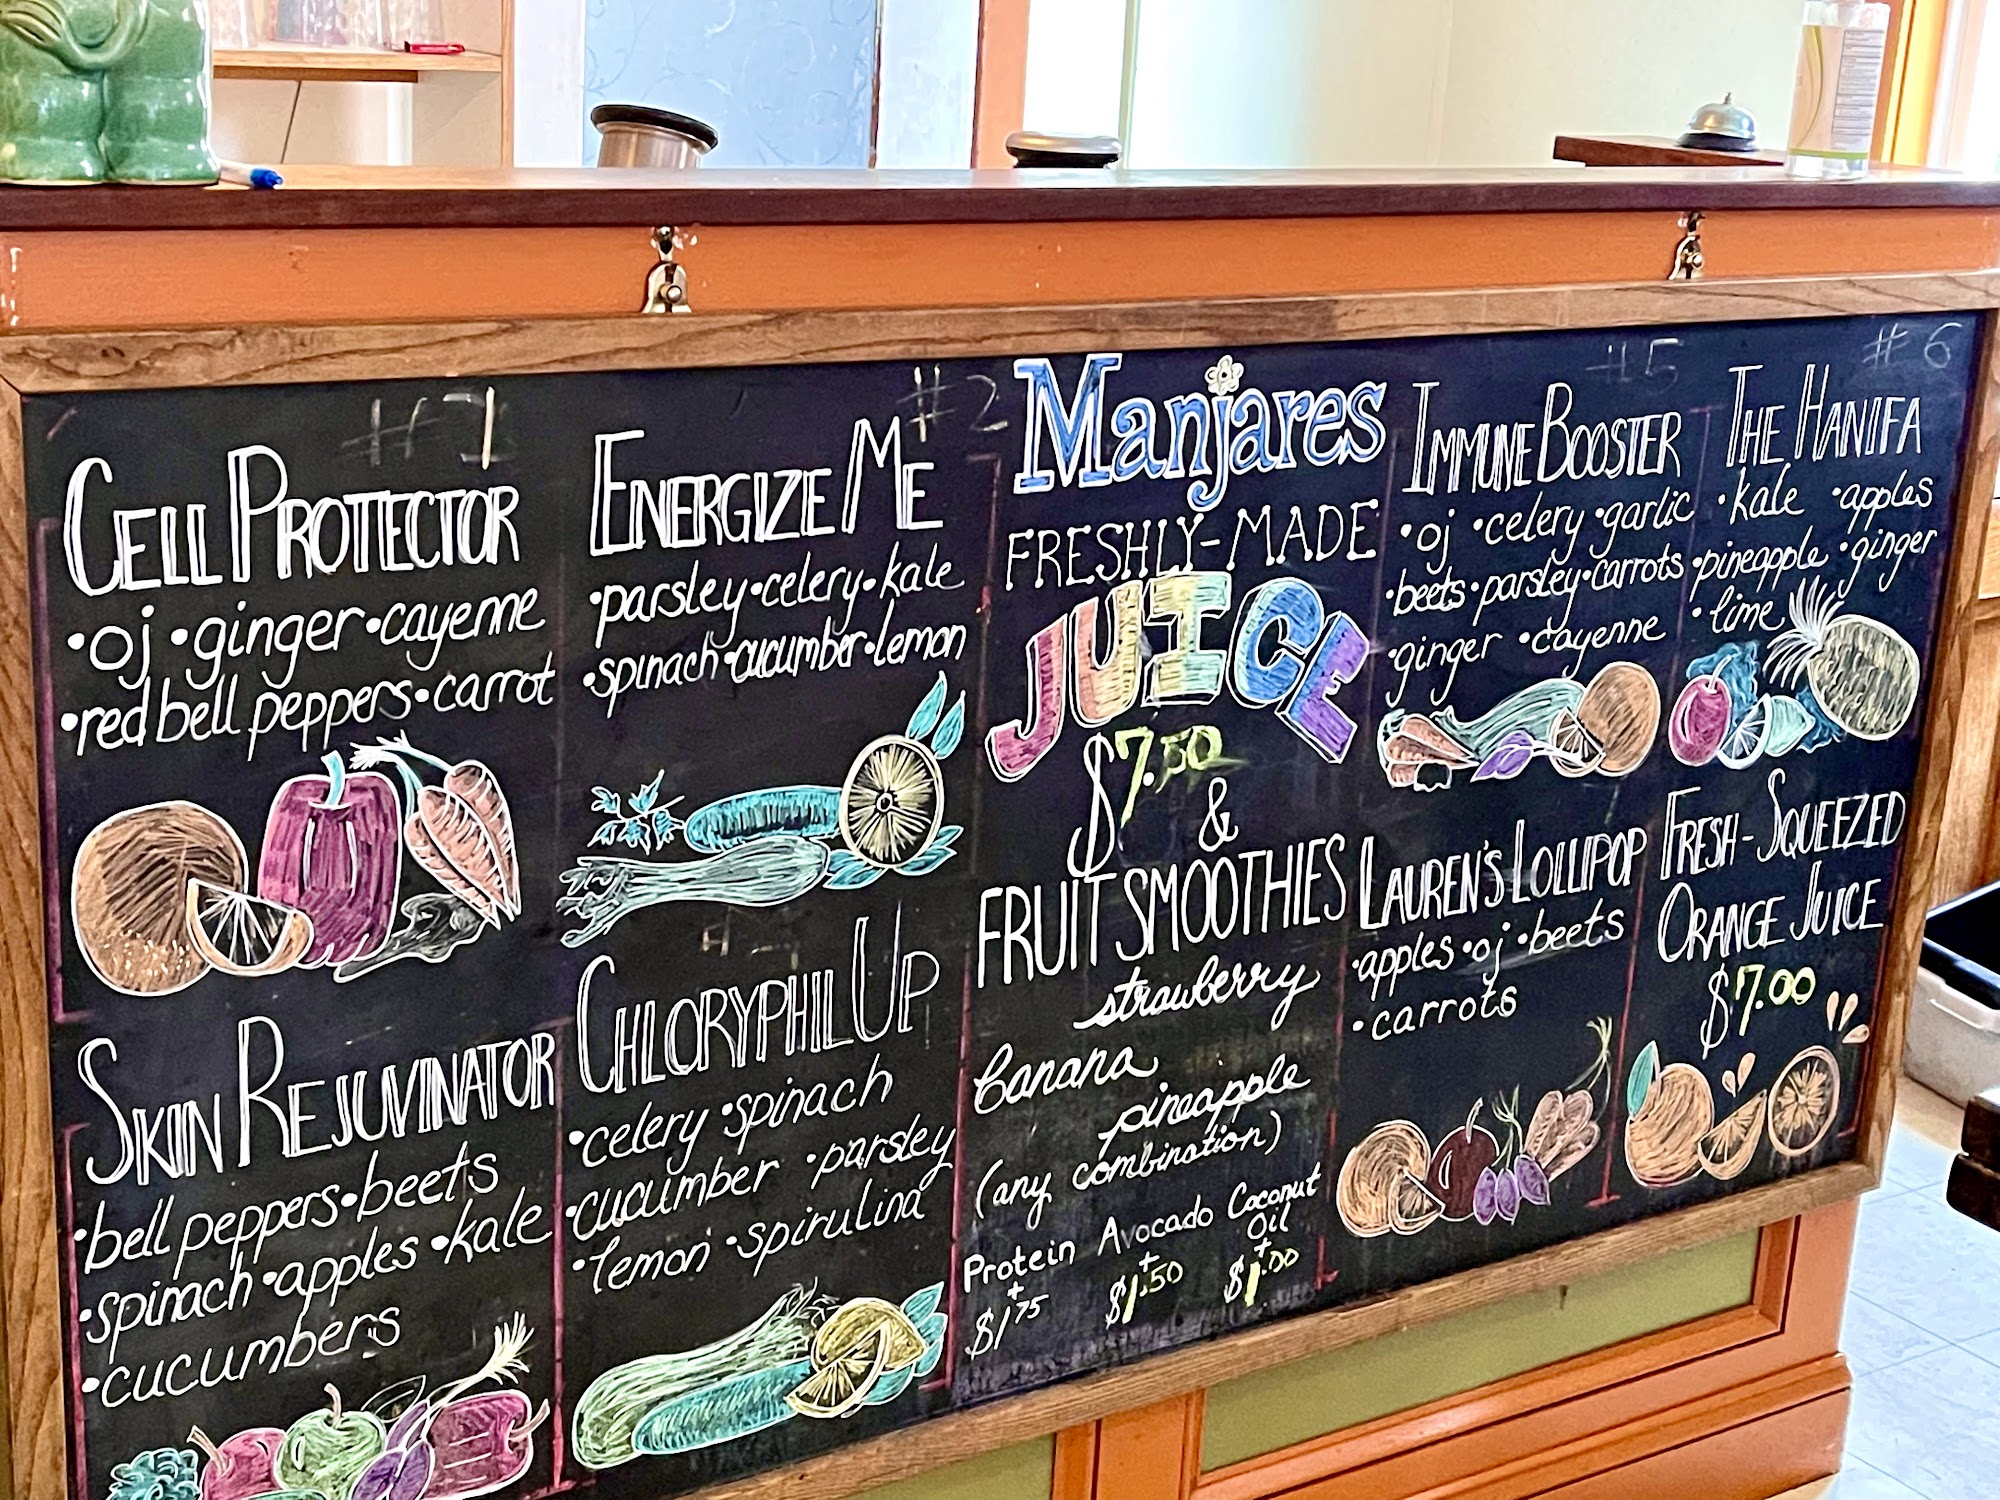 #1
CELL PROTECTOR
•oj •ginger •cayenne
•red bell peppers •carrot
#2
ENERGIZE ME
•parsley •celery •kale
•spinach •cucumber •lemon
SKIN REJUVINATOR
•bell peppers •beets
•spinach •apples •kale
•cucumbers
CHLORYPHIL UP
•celery •spinach
•cucumber •parsley
•lemon •spirulina
Manjares
FRESHLY-MADE
JUICE
$7.50
&
FRUIT SMOOTHIES
strawberry
banana
pineapple
(any combination)
Protein Avocado Coconut Oil
+ + +
$1.75 $1.50 $1.00
#5
IMMUNE BOOSTER
•oj •celery •garlic
•beets •parsley •carrots
•ginger •cayenne
#6
THE HANIFA
•kale •apples
•pineapple •ginger
•lime
LAUREN'S LOLLIPOP
•apples •oj •beets
•carrots
FRESH-SQUEEZED
ORANGE JUICE
$7.00